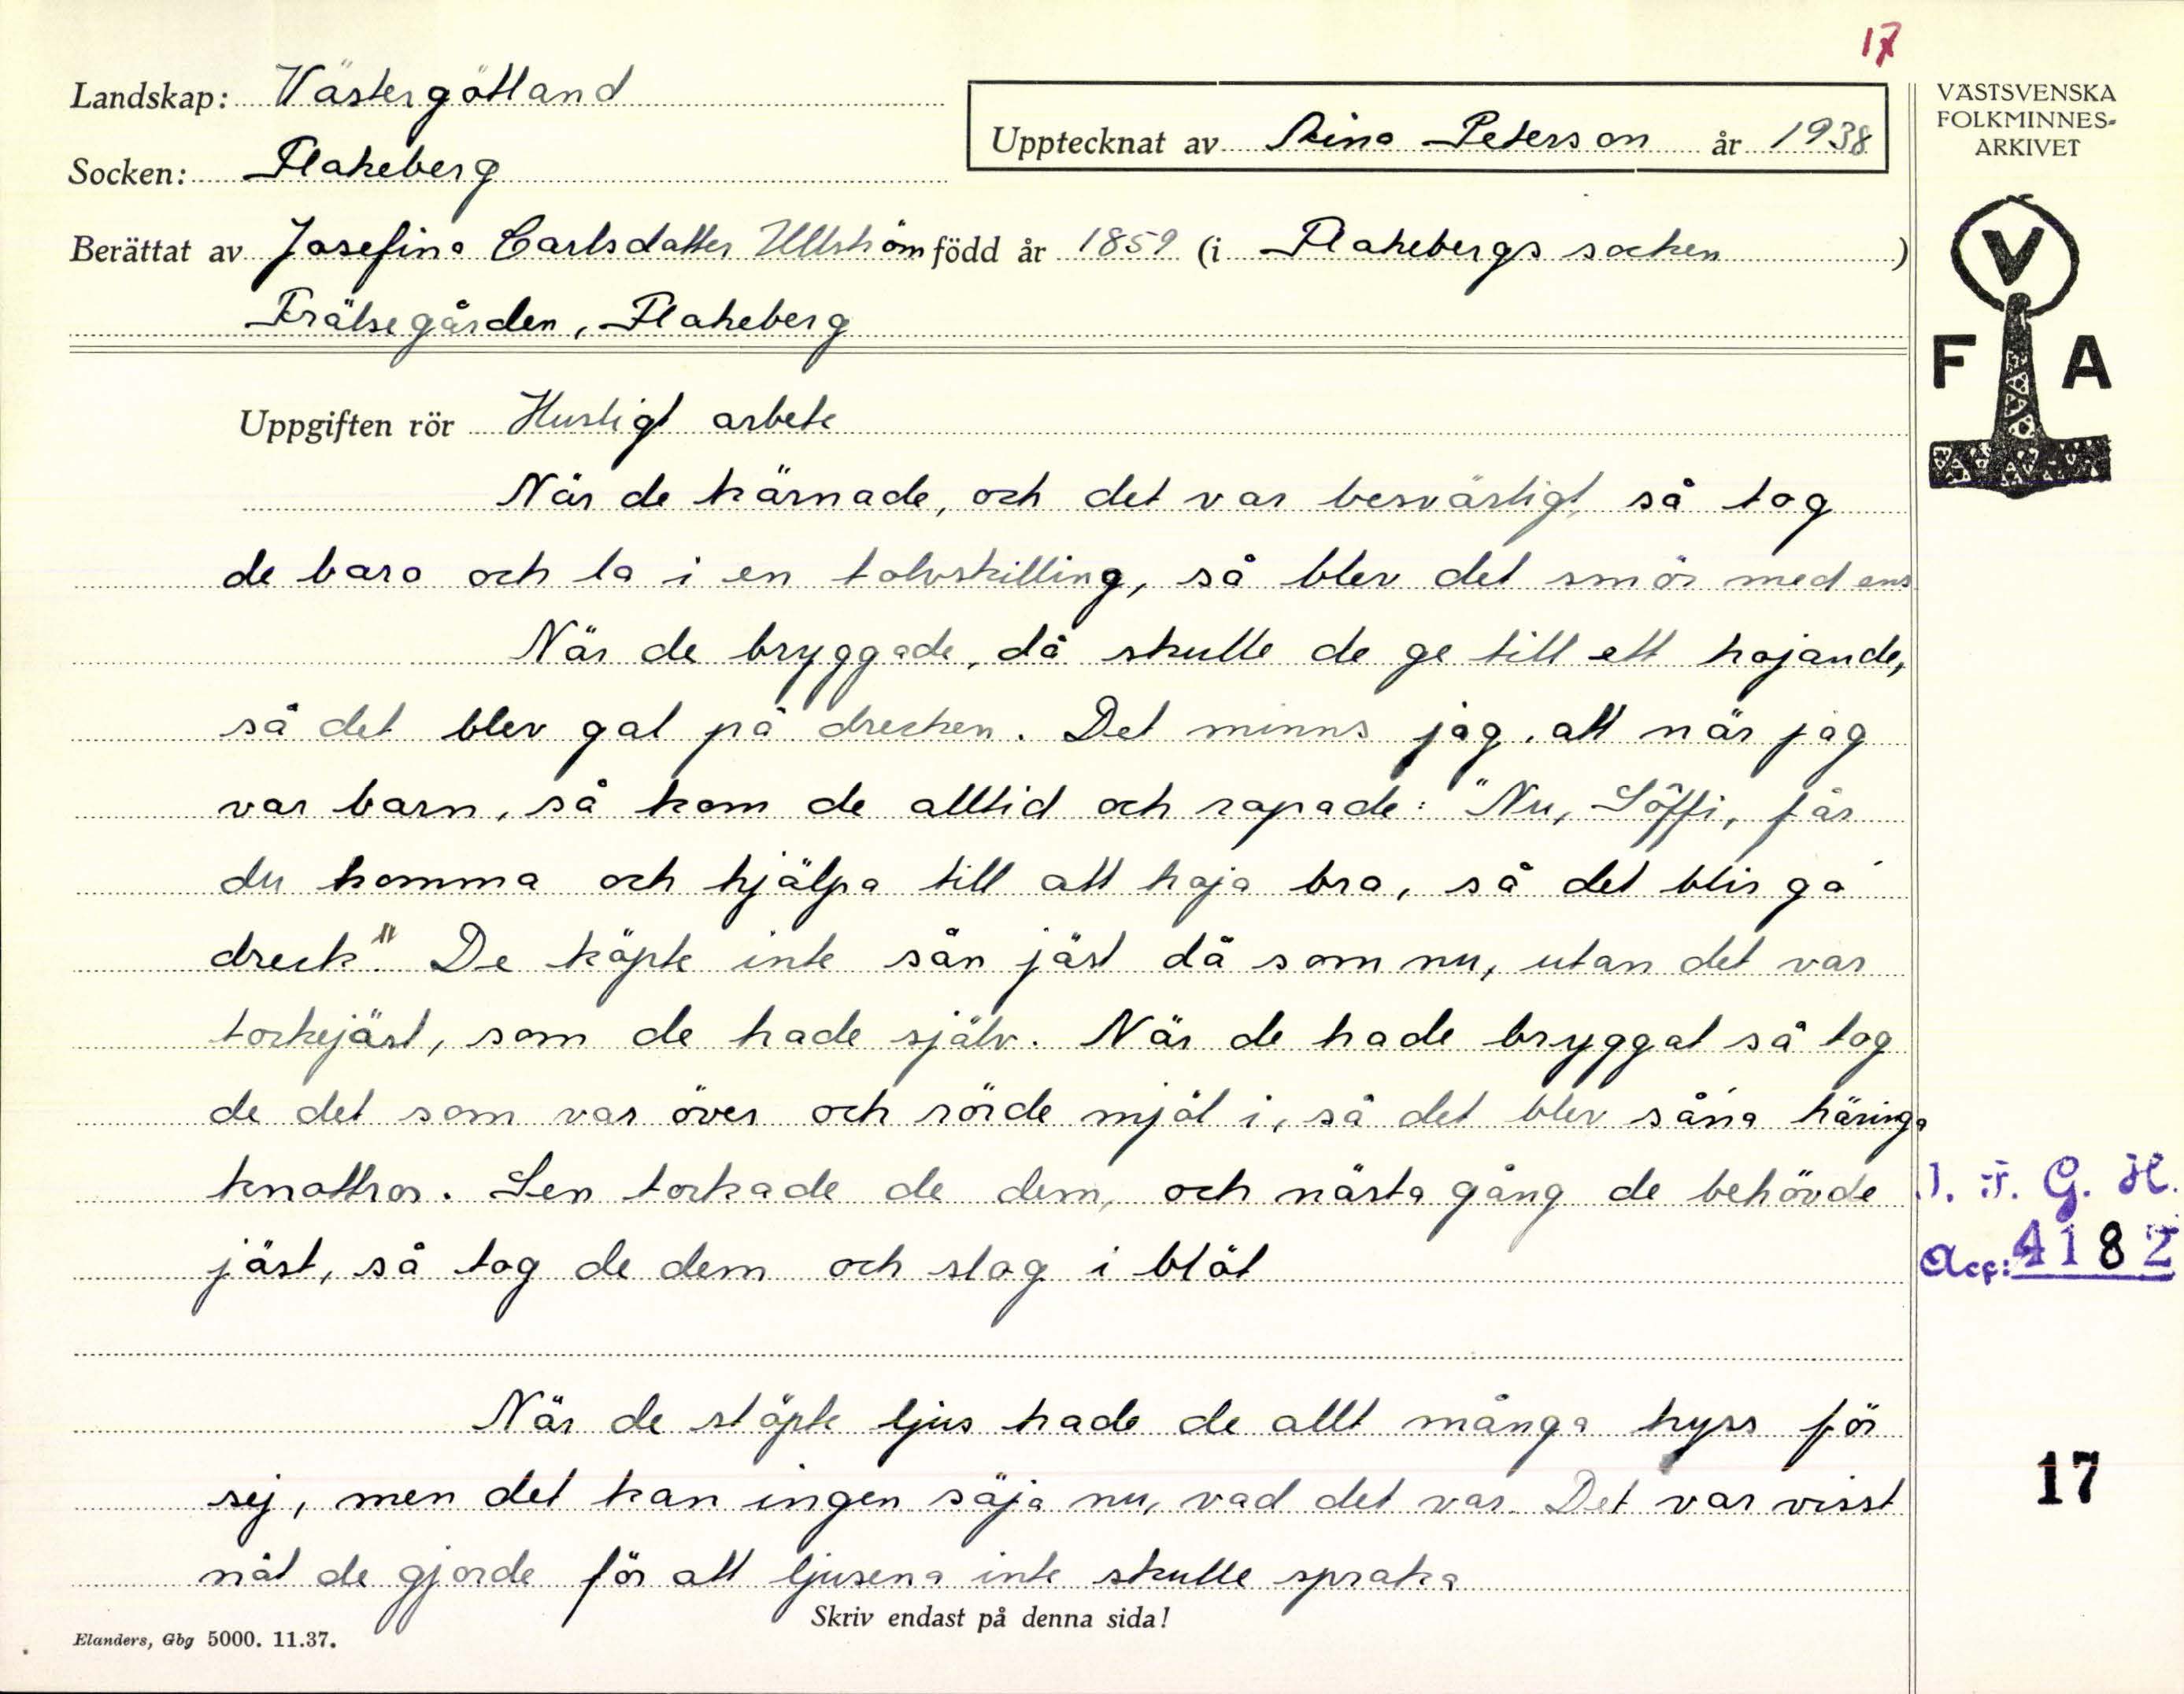 17
Landskap: Västergötland
Upptecknat av Stina Peterson år 1938
Socken: Flakeberg
Berättat av Josefina Carlsdotter Ullström född år 1859 (i Flakebergs socken)
Frälsegården, Flakeberg
VÄSTSVENSKA
FOLKMINNES-
ARKIVET
V
F A
Uppgiften rör Husligt arbete
När de kärnade, och det var besvärligt, så tog
de bara och la i en tolvskilling, så blev det smör med ens
När de bryggade, då skulle de ge till ett hojande,
så det blev gal på drecken. Det minns jag, att när jag
var barn, så kom de alltid och ropade: "Nu, Söffi, får
du komma och hjälpa till att hoja bra, så det blir ga
dreck." De köpte inte sån jäst då som nu, utan det var
torkejäst, som de hade själv. När de hade bryggat så tog
de det som var över och rörde mjöl i, så det blev såna häringa
knottror. Sen torkade de dem, och nästa gång de behövde
jäst, så tog de dem och slog i blöt
När de stöpte ljus hade de allt många hyss för
sej, men det kan ingen säja nu, vad det var. Det var visst
nåt de gjorde för att ljusena inte skulle spraka
I. F. G. H.
Acc: 4182
17
Skriv endast på denna sida!
Elanders, Gbg 5000. 11.37.